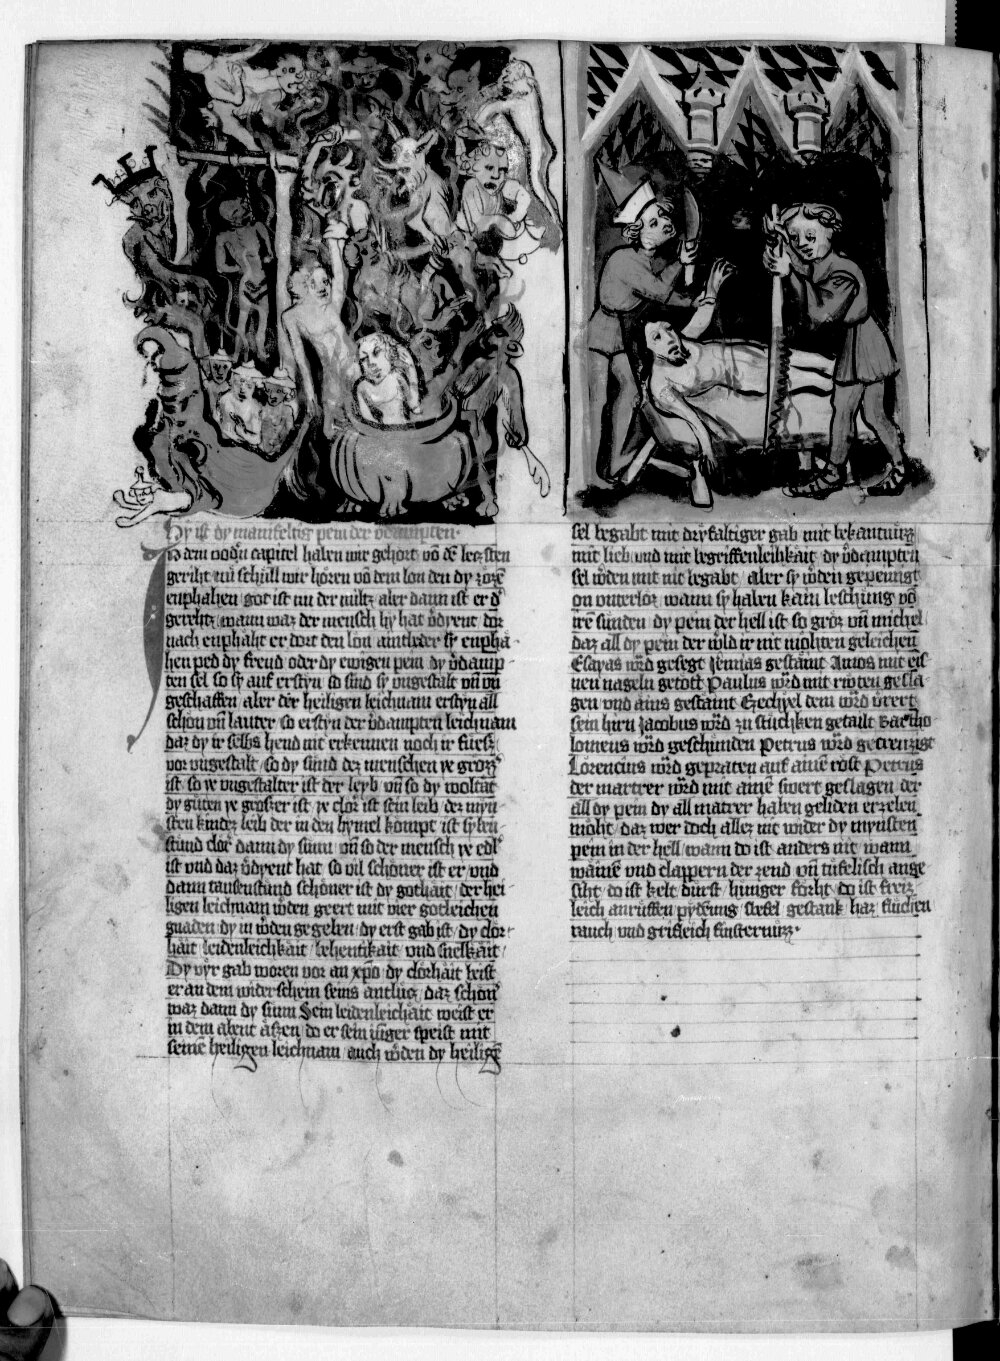 Hy ist dy manifeltig pein der v̓dampten·
In dem vodn̄ capitel haben wir gehort vō dē letzsten
geriht nū schull wir hören vō dem lon den dy
enphahen got ist nu der miltz aber dann ist er d̓
gerehtz wann waz der mensch hy hat v̓dynt daz
nach enphaht er dort den lon aintweder sy enpha
hen ped dy freud oder dy ewigen pein dy v̓damp
ten sel so sy auf erstyn so sind sy vngestalt vn̄ vn
geschaffen aber der heiligen leichnam erstyn all
schön vn̄ lauter so erstyn der v̓dampten leichnam
daz dy ir selbs hend nit erkennen noch ir füesz
vor vngestalt so dy sünd dez menschen ye grozz̓
ist so ye vngestalter ist der leyb vn̄ so dy woltāt
dy güten ye grosser ist ye clor̓ ist sein leib dez myn
sten kindez leib der in den hymel kömpt ist syben
stund clor̓ dann dy sunn vn̄ so der mensch ye edl̓
ist vnd daz v̓dynt hat so vil schöner ist er vnd
dann tausenstund schöner ist dy gothait der hei
ligen leichnam w̓den geert mit vier gotleichen
gnaden dy in w̓den gegeben dy erst gab ist dy clor
hait leidenleichkait behentikait vnd snelkait
Dy vyr gab woren vor an xp̄o dy clorhait beist
er an dem widerschein seins antlütz daz schön̓
waz dann dy sunn Sein leidenleichait weist er
in dem abent äszen do er sein iūger speist mit
seinē heiligen leichnam auch w̓den dy heiligē
sel begabt mit dryfaltiger gab mit bekantnüzz
mit lieb vnd mit begriffenleihkait dy v̓dampten
sel w̓den mit nit begabt aber sy w̓den gepeinigt
on vnterloz wann sy haben kain leschung vō
irē sünden dy pein der hell ist so groz vn̄ michel
daz all dy pein der w̓ld ir nit mohten geleichen
Esayas w̓d gesegt Jemias gestaint Amos mit eis
nen nageln getött Paulus w̓d mit rwten gesla
gen vnd ains gestaint Ezechyel dem w̓d v̓zert
sein hirn Jacobus w̓d zu stüchken getailt Bartho
lomeus w̓d geschunden Petrus w̓d gecreuzigt
Lorencius w̓d gepraten auf aimē rost Petrus
der martrer w̓d mit aimē swert geslagen der
all dy pein dy all matrer haben geliden erzelen
möht daz wer doch allez nit wider dy mynsten
pein in der hell wann do ist anders nit wann
wainē vnd clappern der zend vn̄ tüfelisch ange
siht do ist kelt durst hunger forht do ist freiz
leich anrüffen pydmung swefel gestank haz fluchen
rauch vnd grifleich finsternüzz·